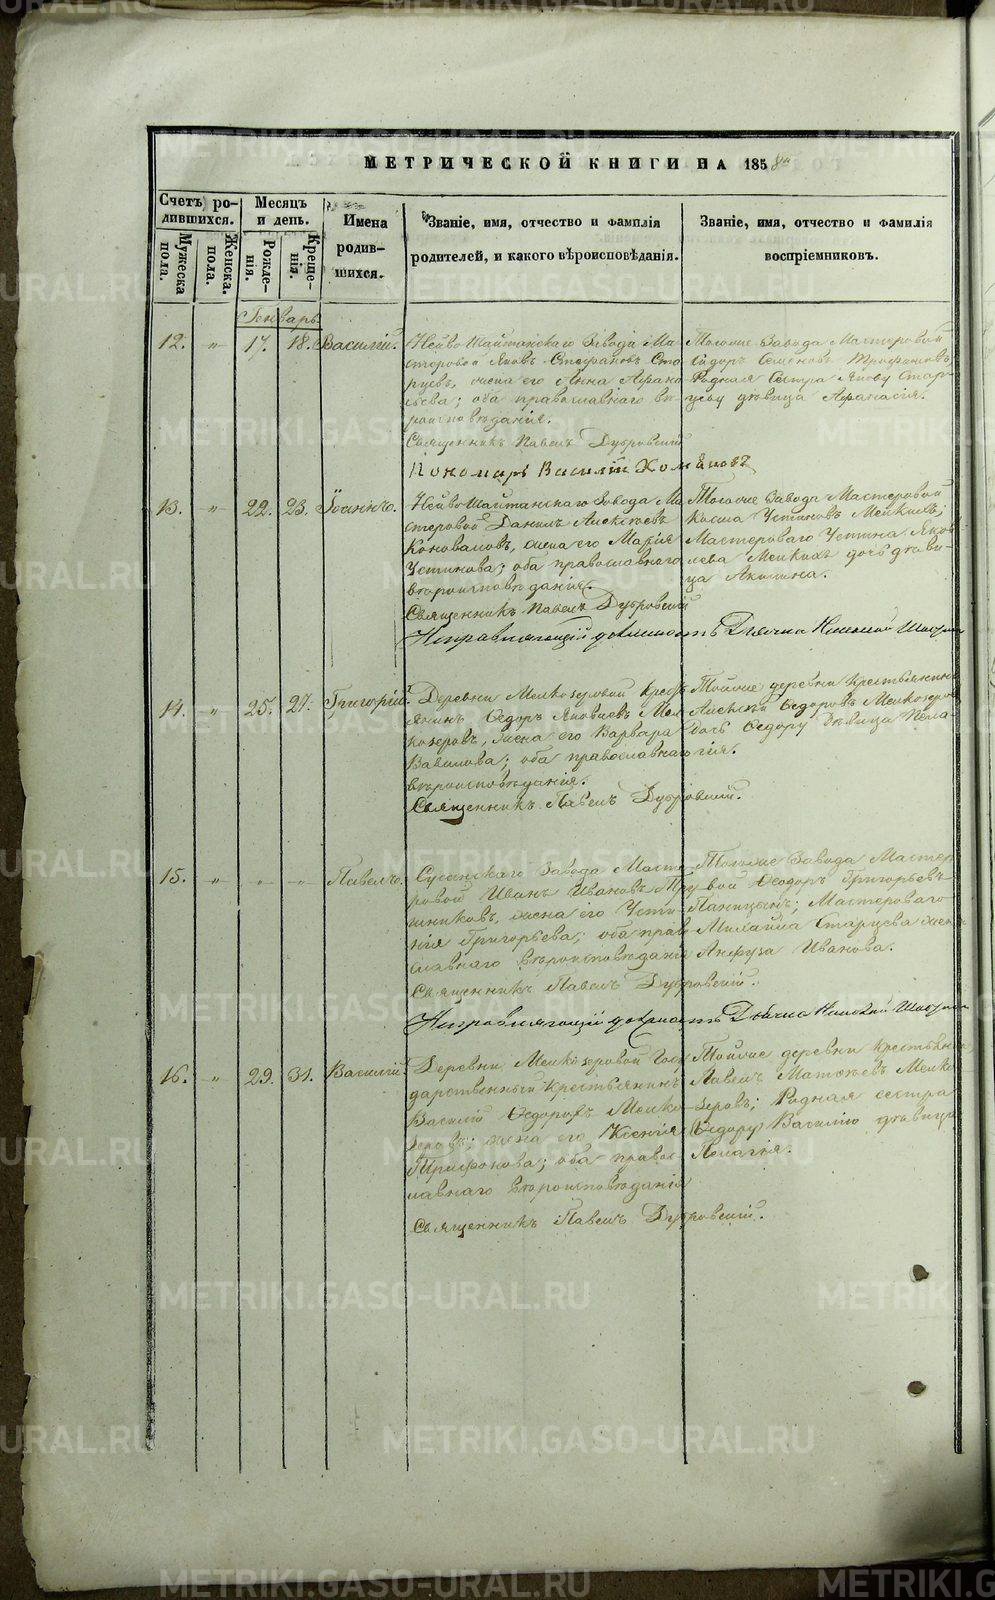 МЕТРИЧЕСКОЙ КНИГИ НА 1858й
Счетъ родившихся.
Мужеска пола.
Женска пола.
Месяцъ и день.
Рожденія.
Крещенія.
Имена родившихся.
Званіе, имя, отчество и фамилія родителей, и какого вѣроисповѣданія.
Званіе, имя, отчество и фамилія воспріемниковъ.
Генварь
12. " 17. 18. Василій.
Нейво-Шайтанскаго Завода Ма-
стеровой Яковъ Стефановъ Стар-
цевъ, жена его Анна Афана-
сьева; оба православнаго вѣ-
роисповѣданія.
Священникъ Павелъ Дубровскій
Пономарь Василій
Тогоже Завода Мастеровой
Сидоръ Семеновъ Трофимовъ
Родная Сестра Якову Стар-
цеву дѣвица Афанасія.
13. " 22. 23. Іоаннъ.
Нейво-Шайтанскаго Завода Ма-
стеровой Данилъ Алексѣевъ
Коноваловъ, жена его Марія
Устинова; оба православнаго
вѣроисповѣданія.
Священникъ Павелъ Дубровскій
Исправляющій должность Дьячка
Тогоже Завода Мастеровой
Косма Устиновъ Мелкихъ;
Мастероваго Устина Яков-
лева Мелкихъ дочь дѣви-
ца Акилина.
14. " 25. 27. Григорій.
Деревни Мелкозеровой Кресть-
янинъ Ѳедоръ Яковлевъ Мел-
козеровъ, жена его Варвара
Вавилова; оба православнаго
вѣроисповѣданія.
Священникъ Павелъ Дубровскій.
Тойже деревни крестьянинъ
Алексѣй Ѳедоровъ Мелкозеровъ
дочь Ѳедору дѣвица Пела-
гія.
15. " " " Павелъ.
Сусанскаго Завода Масте-
ровой Иванъ Ивановъ Тру-
шниковъ, жена его Усти-
нія Григорьева; оба право-
славнаго вѣроисповѣданія
Священникъ Павелъ Дубровскій.
Исправляющій должность Дьячка
Тогоже Завода Мастер-
вой Ѳеодоръ Григорьевъ
Паницынъ; Мастероваго
Михайла Старцева жена
Анфуза Иванова.
16. " 29. 31. Василій
Деревни Мелкозеровой Госу-
дарственный крестьянинъ
Василій Ѳедоровъ Мелко-
зеровъ; жена его Ксенія
Трифонова; оба правос-
лавнаго вѣроисповѣданія
Священникъ Павелъ Дубровскій.
Тойже деревни крестьянинъ
Павелъ Матвѣевъ Мелко-
зеровъ; Родная сестра
Ѳедору Василію дѣвица
Пелагія.
METRIKI.GASO-URAL.RU